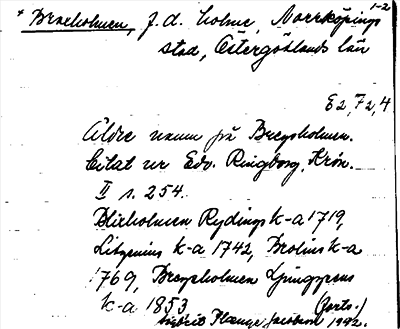 * Braxholmen, f.d. holme, Norrköpings 1-2
stad, Östergötlands län
E2,72,4
Äldre namn på Bergsholmen.
Citat ur Edv. Ringborg, Krön.
II s. 254.
Blixholmen Rydings k-a 1719,
Litzenius k-a 1742, Brolins k-a
1769, Bergsholmen Ljunggrens
k-a 1853 (forts.)
1992.